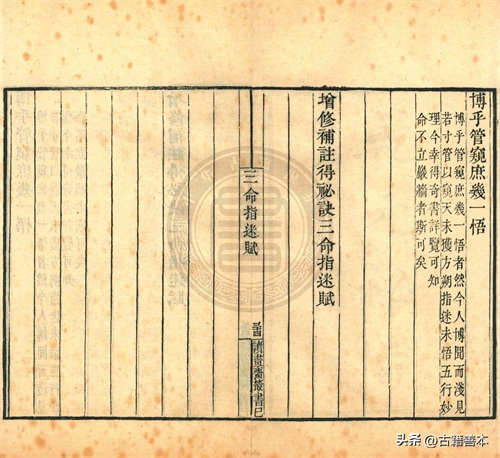 博乎管窺庶幾一悟
博乎管窺庶幾一悟者然今人博聞而淺見
若寸管以窺天未獲方朔指迷未悟五行妙
理今幸得奇書詳覽可知
命不立嚴牆者斯可矣
增修補註得祕訣三命指迷賦
三命指迷賦
讀畫齋叢書己
头条 @古籍善本